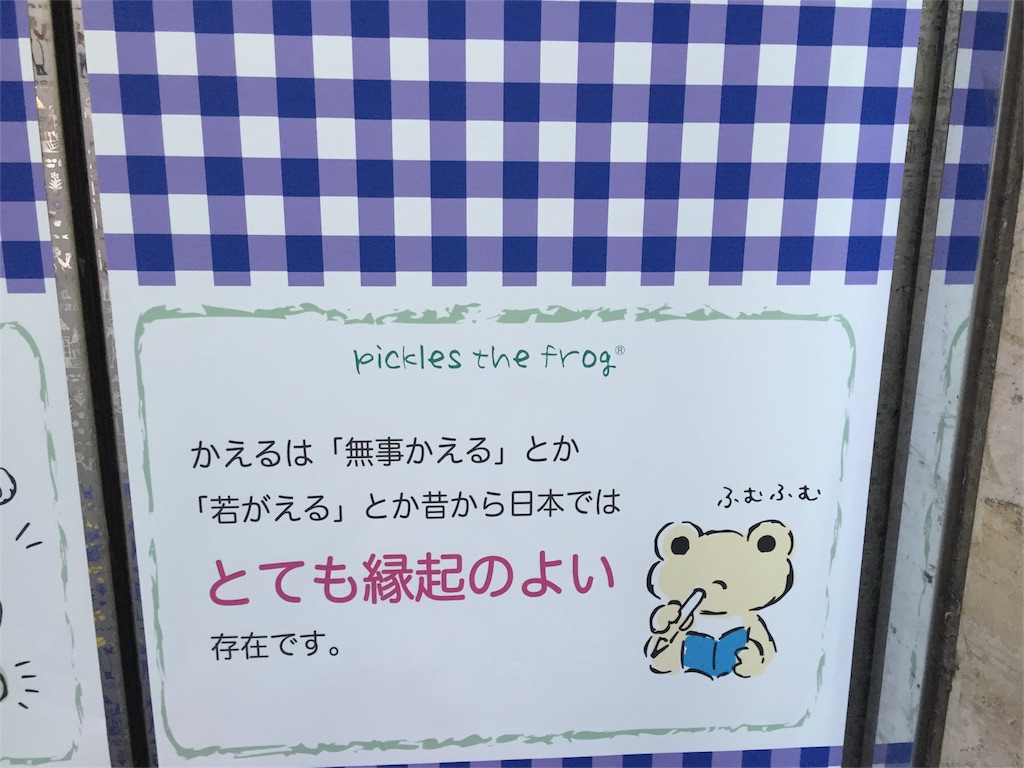 pickles the frog®
かえるは「無事かえる」とか
「若がえる」とか昔から日本では
とても縁起のよい
存在です。
ふむふむ